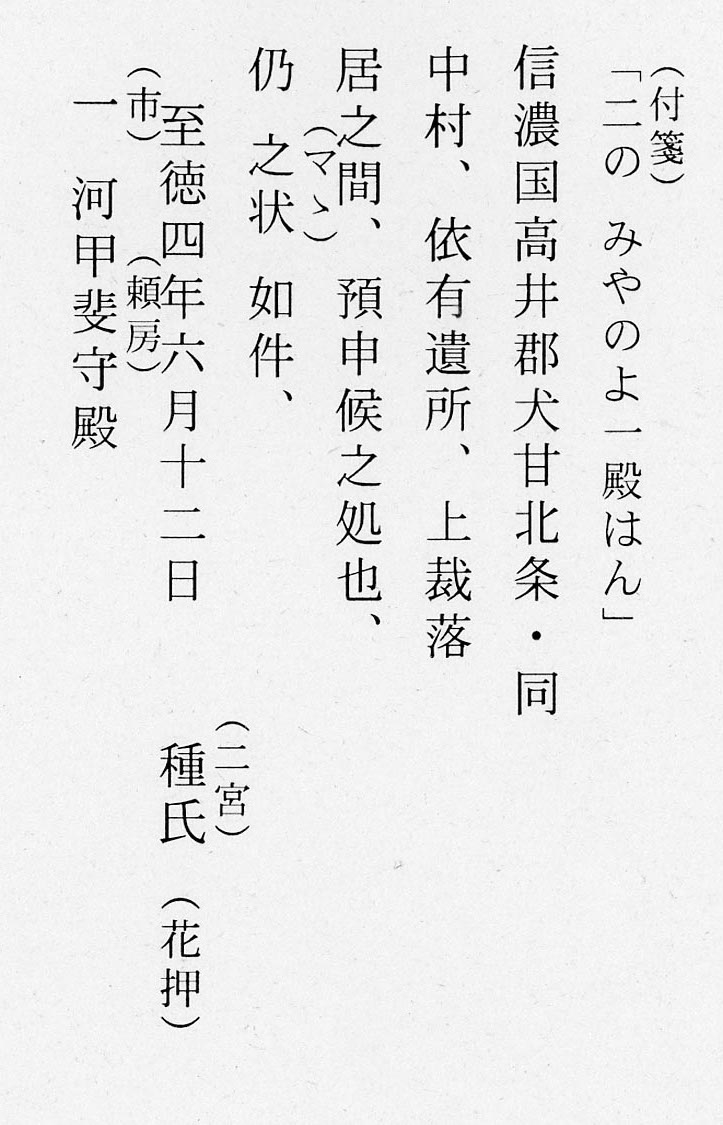 （付箋）
「二の　みやのよ一殿はん」
信濃国高井郡犬甘北条・同
中村、依有遺所、上裁落
居之間、預申候之処也、
（マヽ）
仍　之状　如件、
（二宮）
至徳四年六月十二日　　種氏　（花押）
（市）　（頼房）
一　河甲斐守殿